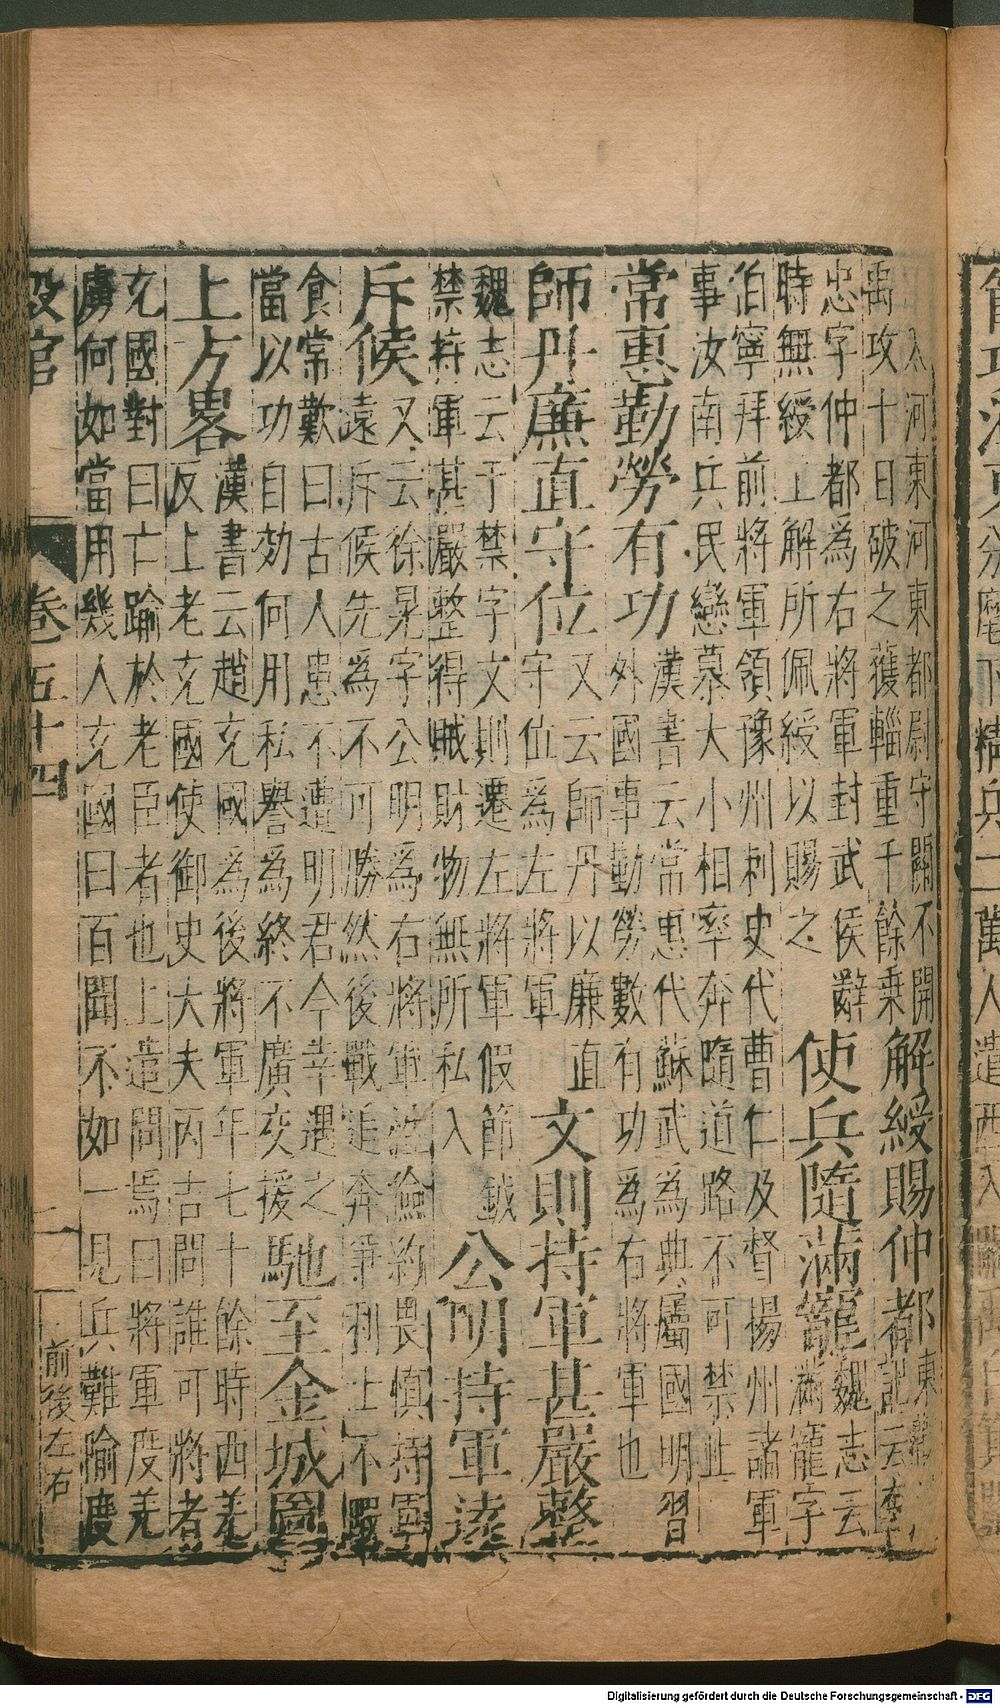 入河東河東都尉守關不開
禹攻十日破之獲輜重千餘乘
解綬賜仲都
東觀
記云李
忠字仲都為右將軍封武侯辭
時無綬上解所佩綬以賜之
使兵隨滿寵
魏志云
滿寵字
伯寧拜前將軍領豫州刺史代曹仁及督楊州諸軍
事汝南兵民戀慕大小相率奔隨道路不可禁止
常惠勤勞有功
漢書云常惠代蘇武為典屬國明習
外國事勤勞數有功為右將軍也
師丹廉直守位
又云師丹以廉直
守位為左將軍
文則持軍甚嚴整
魏志云于禁字文則遷左將軍假節鉞
禁持軍甚嚴整得賊財物無所私入
公明持軍遠
斥候
又云徐晃字公明為右將軍性儉約畏慎持軍
遠斥候先為不可勝然後戰追奔爭利士不暇
食常歎曰古人患不遭明君今幸遇之
當以功自効何用私譽為終不廣交援
馳至金城圖
上方畧
漢書云趙充國為後將軍年七十餘時西羌
反上老充國使御史大夫丙吉問誰可將者
充國對曰亡踰於老臣者也上遣問焉曰將軍度羌
虜何如當用幾人充國曰百聞不如一見兵難隃度
設官 卷五十四 二 前後左右
Digitalisierung gefördert durch die Deutsche Forschungsgemeinschaft - DFG